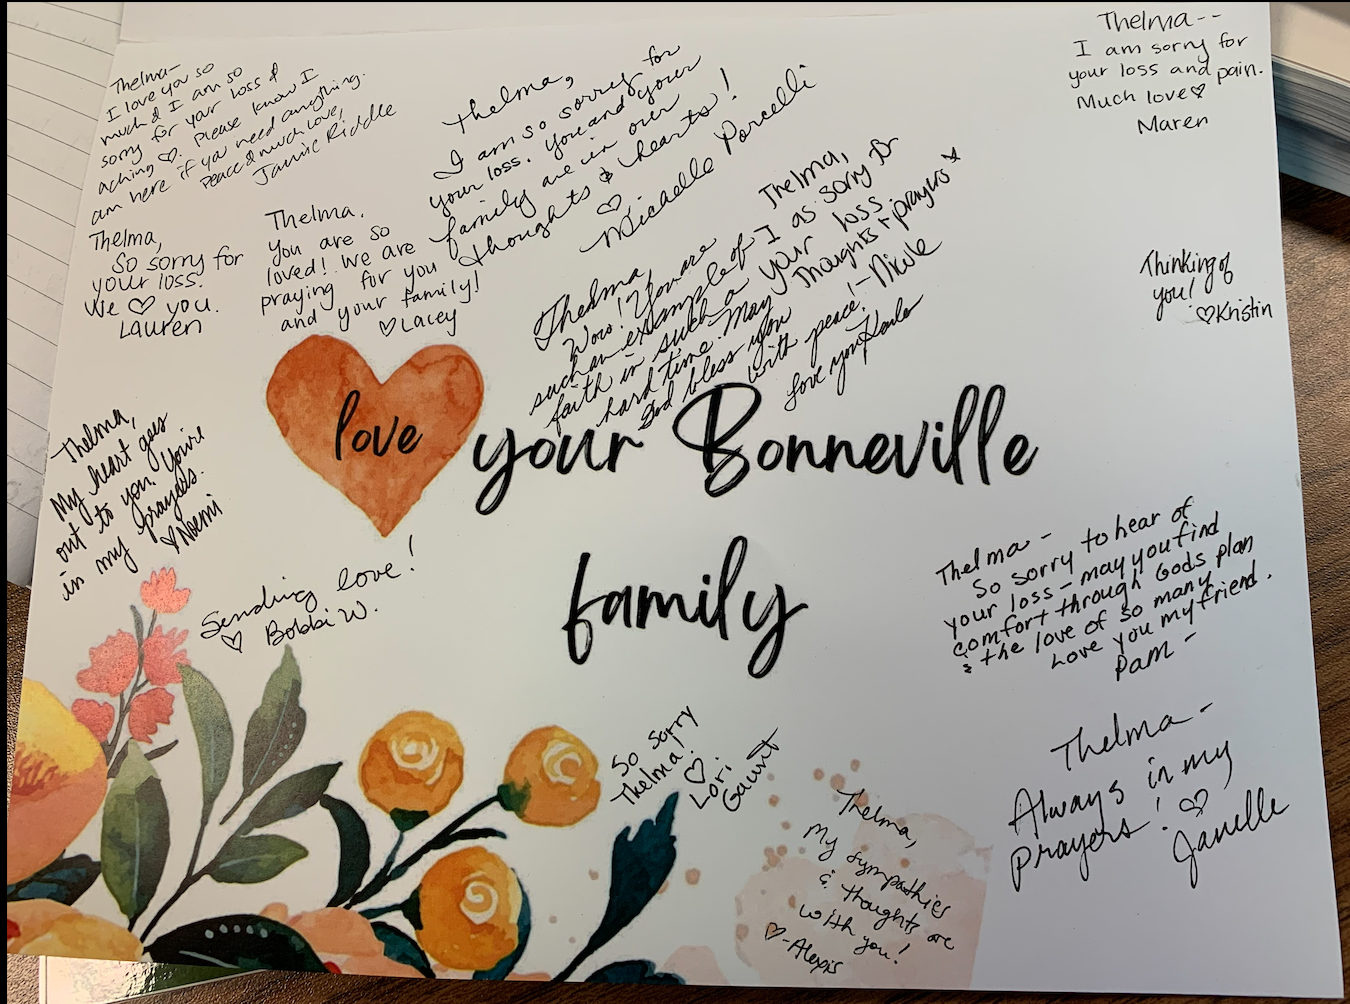 Thelma-
I love you so
much & I am so
sorry for your loss &
aching ♡. Please know I
am here if you need anything.
Peace & much love,
Jamie Riddle
Thelma,
I am so sorry for
your loss. You and your
family are in our
thoughts & hearts!
♡
Micaelle Porcelli
Thelma--
I am sorry for
your loss and pain.
Much love♡
Maren
Thelma,
So sorry for
your loss.
We ♡ you.
Lauren
Thelma,
You are so
loved! We are
praying for you
and your family!
♡Lacey
Thelma,
I as sorry for
your loss.
Thoughts + prayers
!-Nicole
Thelma
Wow! You are
such an example of
faith in such a
hard time. May
God bless you
with peace.
Love you Karla
Thinking of
you!
♡Kristin
love your Bonneville
family
Thelma,
My heart goes
out to you. You're
in my prayers.
♡Noemi
Sending love!
♡ Bobbi W.
Thelma-
So sorry to hear of
your loss - may you find
comfort through Gods plan
& the love of so many.
Love you my friend.
Pam-
So sorry
Thelma!
♡
Lori
Gaunt
Thelma,
My sympathies
& thoughts are
with you!
♡-Alexis
Thelma-
Always in my
prayers! ♡
Janelle